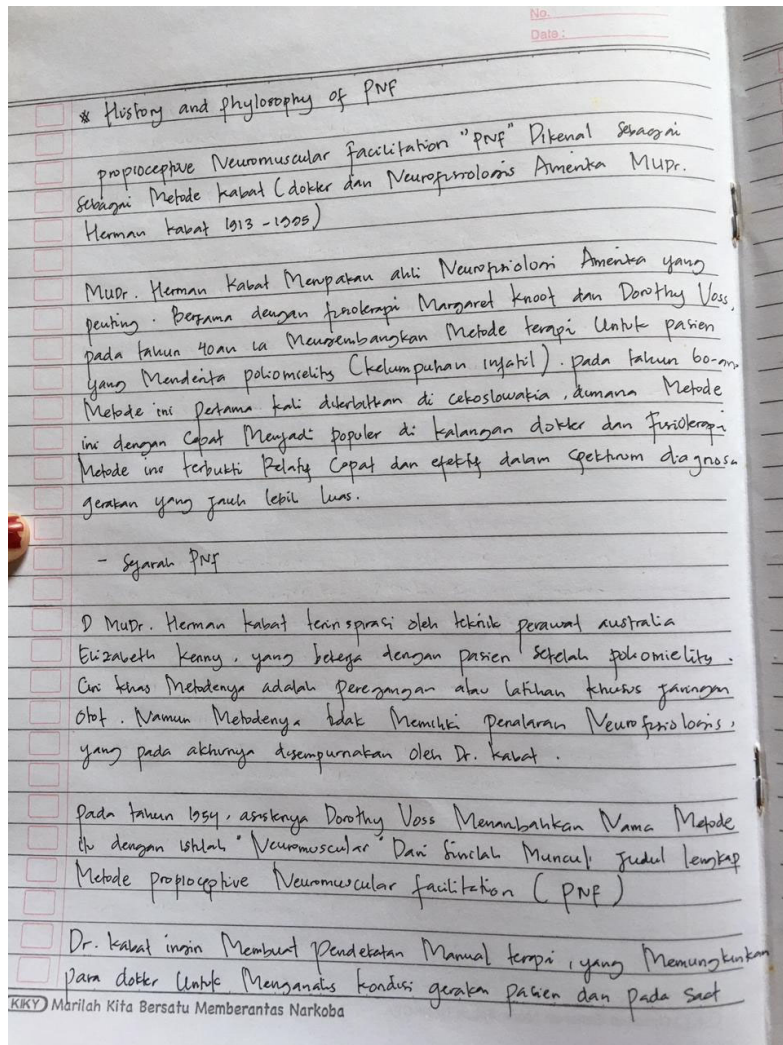 No.
Date :
* History and phylosophy of PNF
propioceptive Neuromuscular facilitation "PNF" Dikenal sebagai
sebagai Metode kabat (dokter dan Neurofisiologis Amerika MUDr.
Herman kabat 1913 - 1995)
MUDr. Herman kabat Merupakan ahli Neurofisiologi Amerika yang
penting. Bersama dengan fisioterapi Margaret knoot dan Dorothy Voss,
pada tahun 40an ia Mengembangkan Metode terapi Untuk pasien
yang Menderita poliomielitis (kelumpuhan infatil). pada tahun 60-an,
Metode ini pertama kali diterbitkan di cekoslowakia, dimana Metode
ini dengan cepat Menjadi populer di kalangan dokter dan fisioterapi
Metode ini terbukti Relatif Cepat dan efektif dalam spektrum diagnosa
gerakan yang jauh lebih luas.
- Sejarah PNF
D MUDr. Herman kabat terinspirasi oleh teknik perawat australia
Elizabeth kenny, yang bekerja dengan pasien setelah poliomielitis.
Ciri khas Metodenya adalah peregangan atau latihan khusus jaringan
otot. Namun Metodenya tidak Memiliki penalaran Neurofisiologis,
yang pada akhirnya disempurnakan oleh Dr. kabat.
pada tahun 1954, asistenya Dorothy Voss Menambahkan Nama Metode
itu dengan istilah "Neuromuscular" Dari Sinilah Muncul judul lengkap
Metode propioceptive Neuromuscular facilitation (PNF)
Dr. kabat ingin Membuat pendekatan Manual terapi, yang Memungkinkan
para dokter Untuk Menganalisis kondisi gerakan pasien dan pada saat
KIKY Marilah Kita Bersatu Memberantas Narkoba